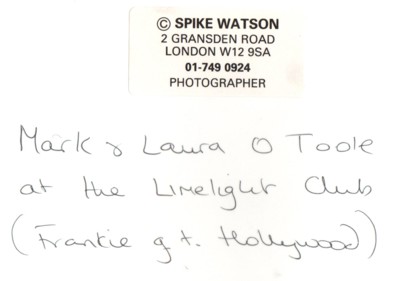 © SPIKE WATSON
2 GRANSDEN ROAD
LONDON W12 9SA
01-749 0924
PHOTOGRAPHER
Mark & Laura O Toole
at the Limelight Club
(Frankie g t. Hollywood)